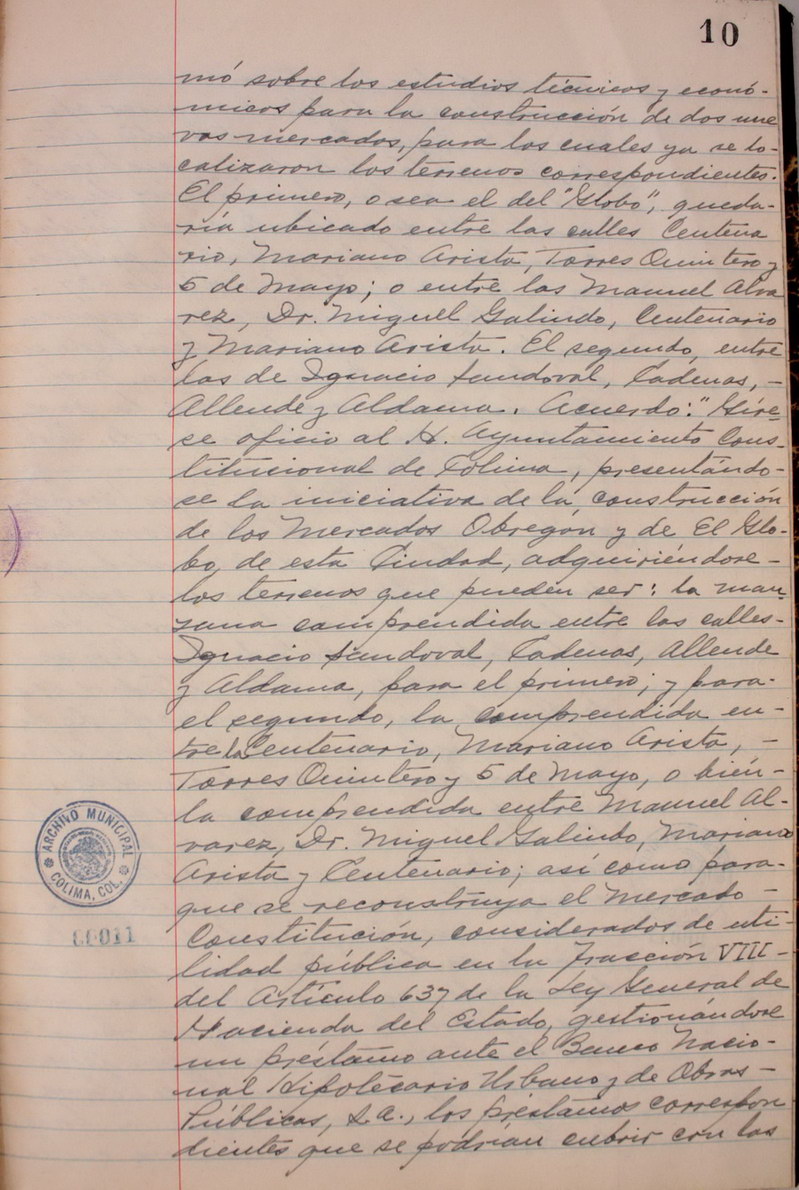 10
mó sobre los estudios técnicos y econó-
micos para la construcción de dos nue
vos mercados, para los cuales ya se lo-
calizaron los terrenos correspondientes.
El primero, o sea el del "Globo", queda-
ría ubicado entre las calles Centena
rio, Mariano Arista, Torres Quintero y
5 de Mayo; o entre las Manuel Alva
rez, Dr. Miguel Galindo, Centenario
y Mariano Arista. El segundo, entre
las de Ignacio Sandoval, Cadenas, -
Allende y Aldama. Acuerdo: "Gíre-
se oficio al H. Ayuntamiento Cons-
titucional de Colima, presentándo-
se la iniciativa de la construcción
de los Mercados Obregón y de El Glo-
bo, de esta Ciudad, adquiriéndose -
los terrenos que pueden ser: la man
zana comprendida entre las calles-
Ignacio Sandoval, Cadenas, Allende
y Aldama, para el primero; y para-
el segundo, la comprendida en-
tre la Centenario, Mariano Arista, -
Torres Quintero y 5 de Mayo, o bién-
la comprendida entre Manuel Al-
varez, Dr. Miguel Galindo, Mariano
Arista y Centenario; así como para-
que se reconstruya el Mercado -
Constitución, considerados de uti-
lidad pública en la fracción VIII -
del Artículo 637 de la Ley General de
Hacienda del Estado, gestionándose
un préstamo ante el Banco Nacio-
nal Hipotecario Urbano y de Obras -
Públicas, S.A., los préstamos correspon
dientes que se podrían cubrir con los
ARCHIVO MUNICIPAL
COLIMA, COL.
00011